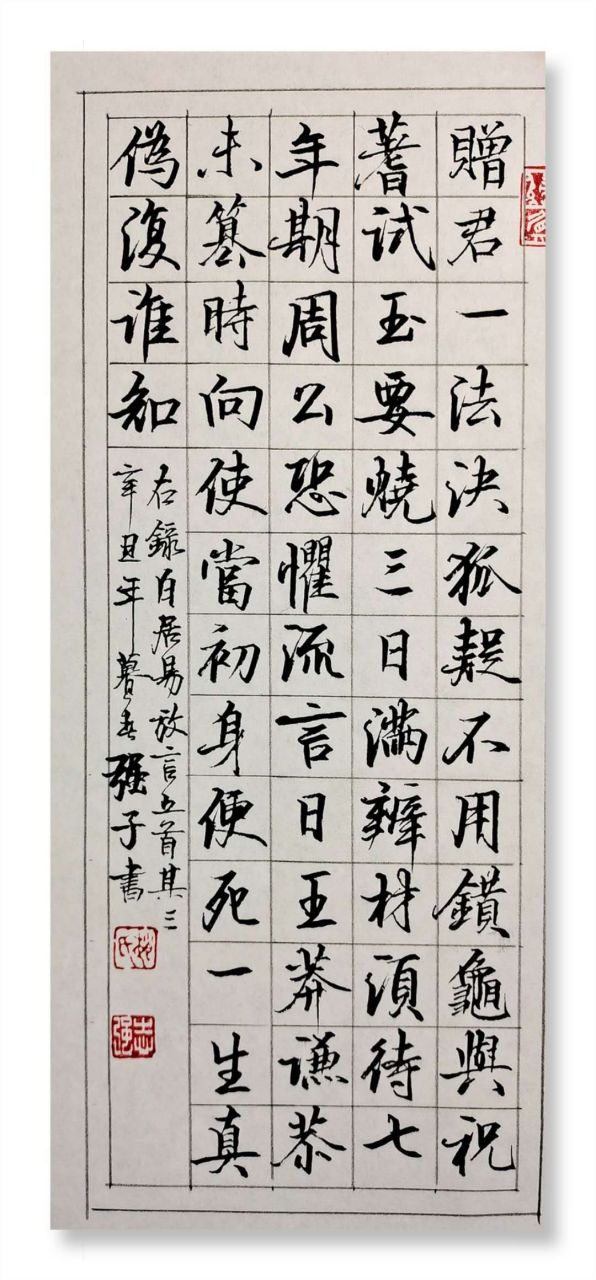 贈君一法決狐疑不用鑽龜與祝
蓍試玉要燒三日滿辨材須待七
年期周公恐懼流言日王莽謙恭
未篡時向使當初身便死一生真
偽復誰知
右錄白居易放言五首其三
辛丑年暮春强子書
氏
志强